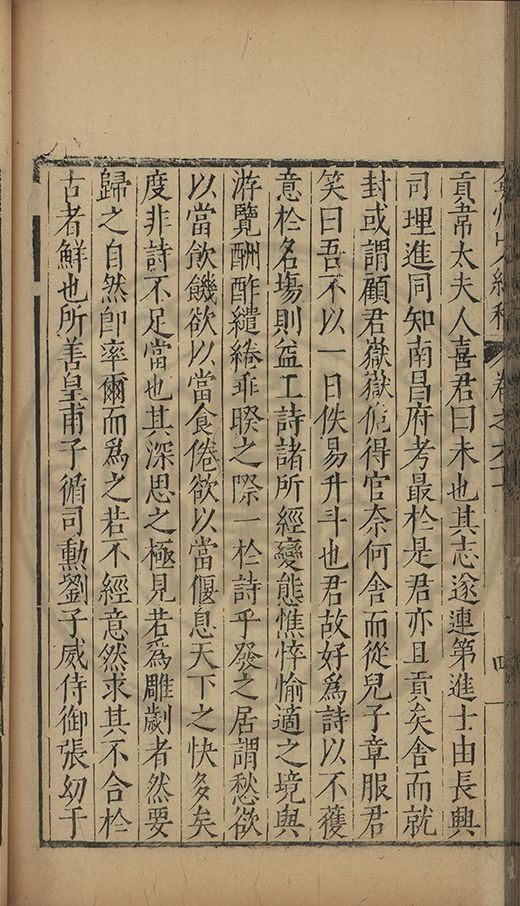 弇州山人續稿 卷之六十 四
貢韋太夫人喜君曰未也其志遂連第進士由長興
司理進同知南昌府考最於是君亦且貢矣舍而就
封或謂顧君嶽嶽俛得官奈何舍而從兒子章服君
笑曰吾不以一日佚易升斗也君故好為詩以不獲
意於名塲則益工詩諸所經變態憔悴愉適之境與
游覽酬酢繾綣乖暌之際一於詩乎發之居謂愁欲
以當飲饑欲以當食倦欲以當偃息天下之快多矣
度非詩不足當也其深思之極見若為雕劌者然要
歸之自然卽率爾而為之若不經意然求其不合於
古者鮮也所善皇甫子循司勳劉子威侍御張幼于